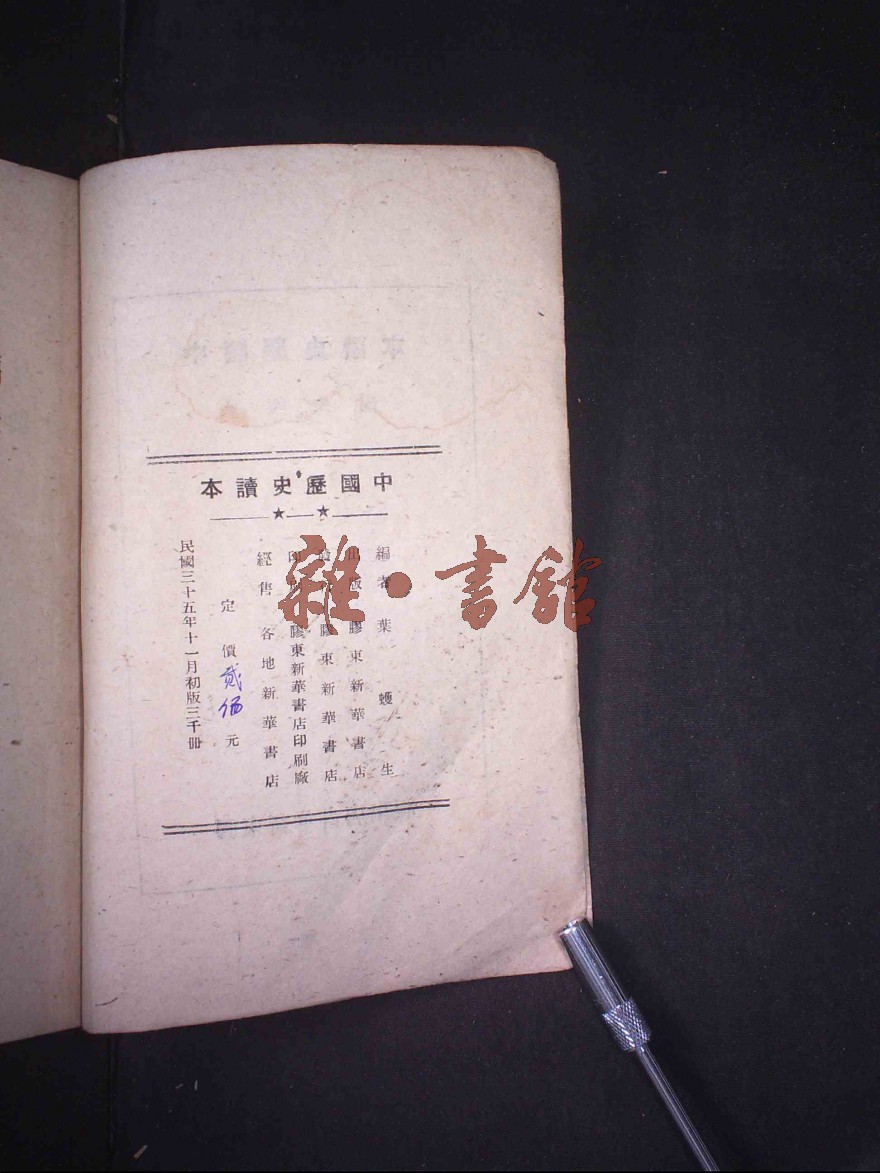 中國歷史讀本
編著 葉蠖生
出版 膠東新華書店
膠東新華書店
膠東新華書店印刷廠
經售 各地新華書店
定價貳佰元
民國三十五年十一月初版三千冊
雜·書館